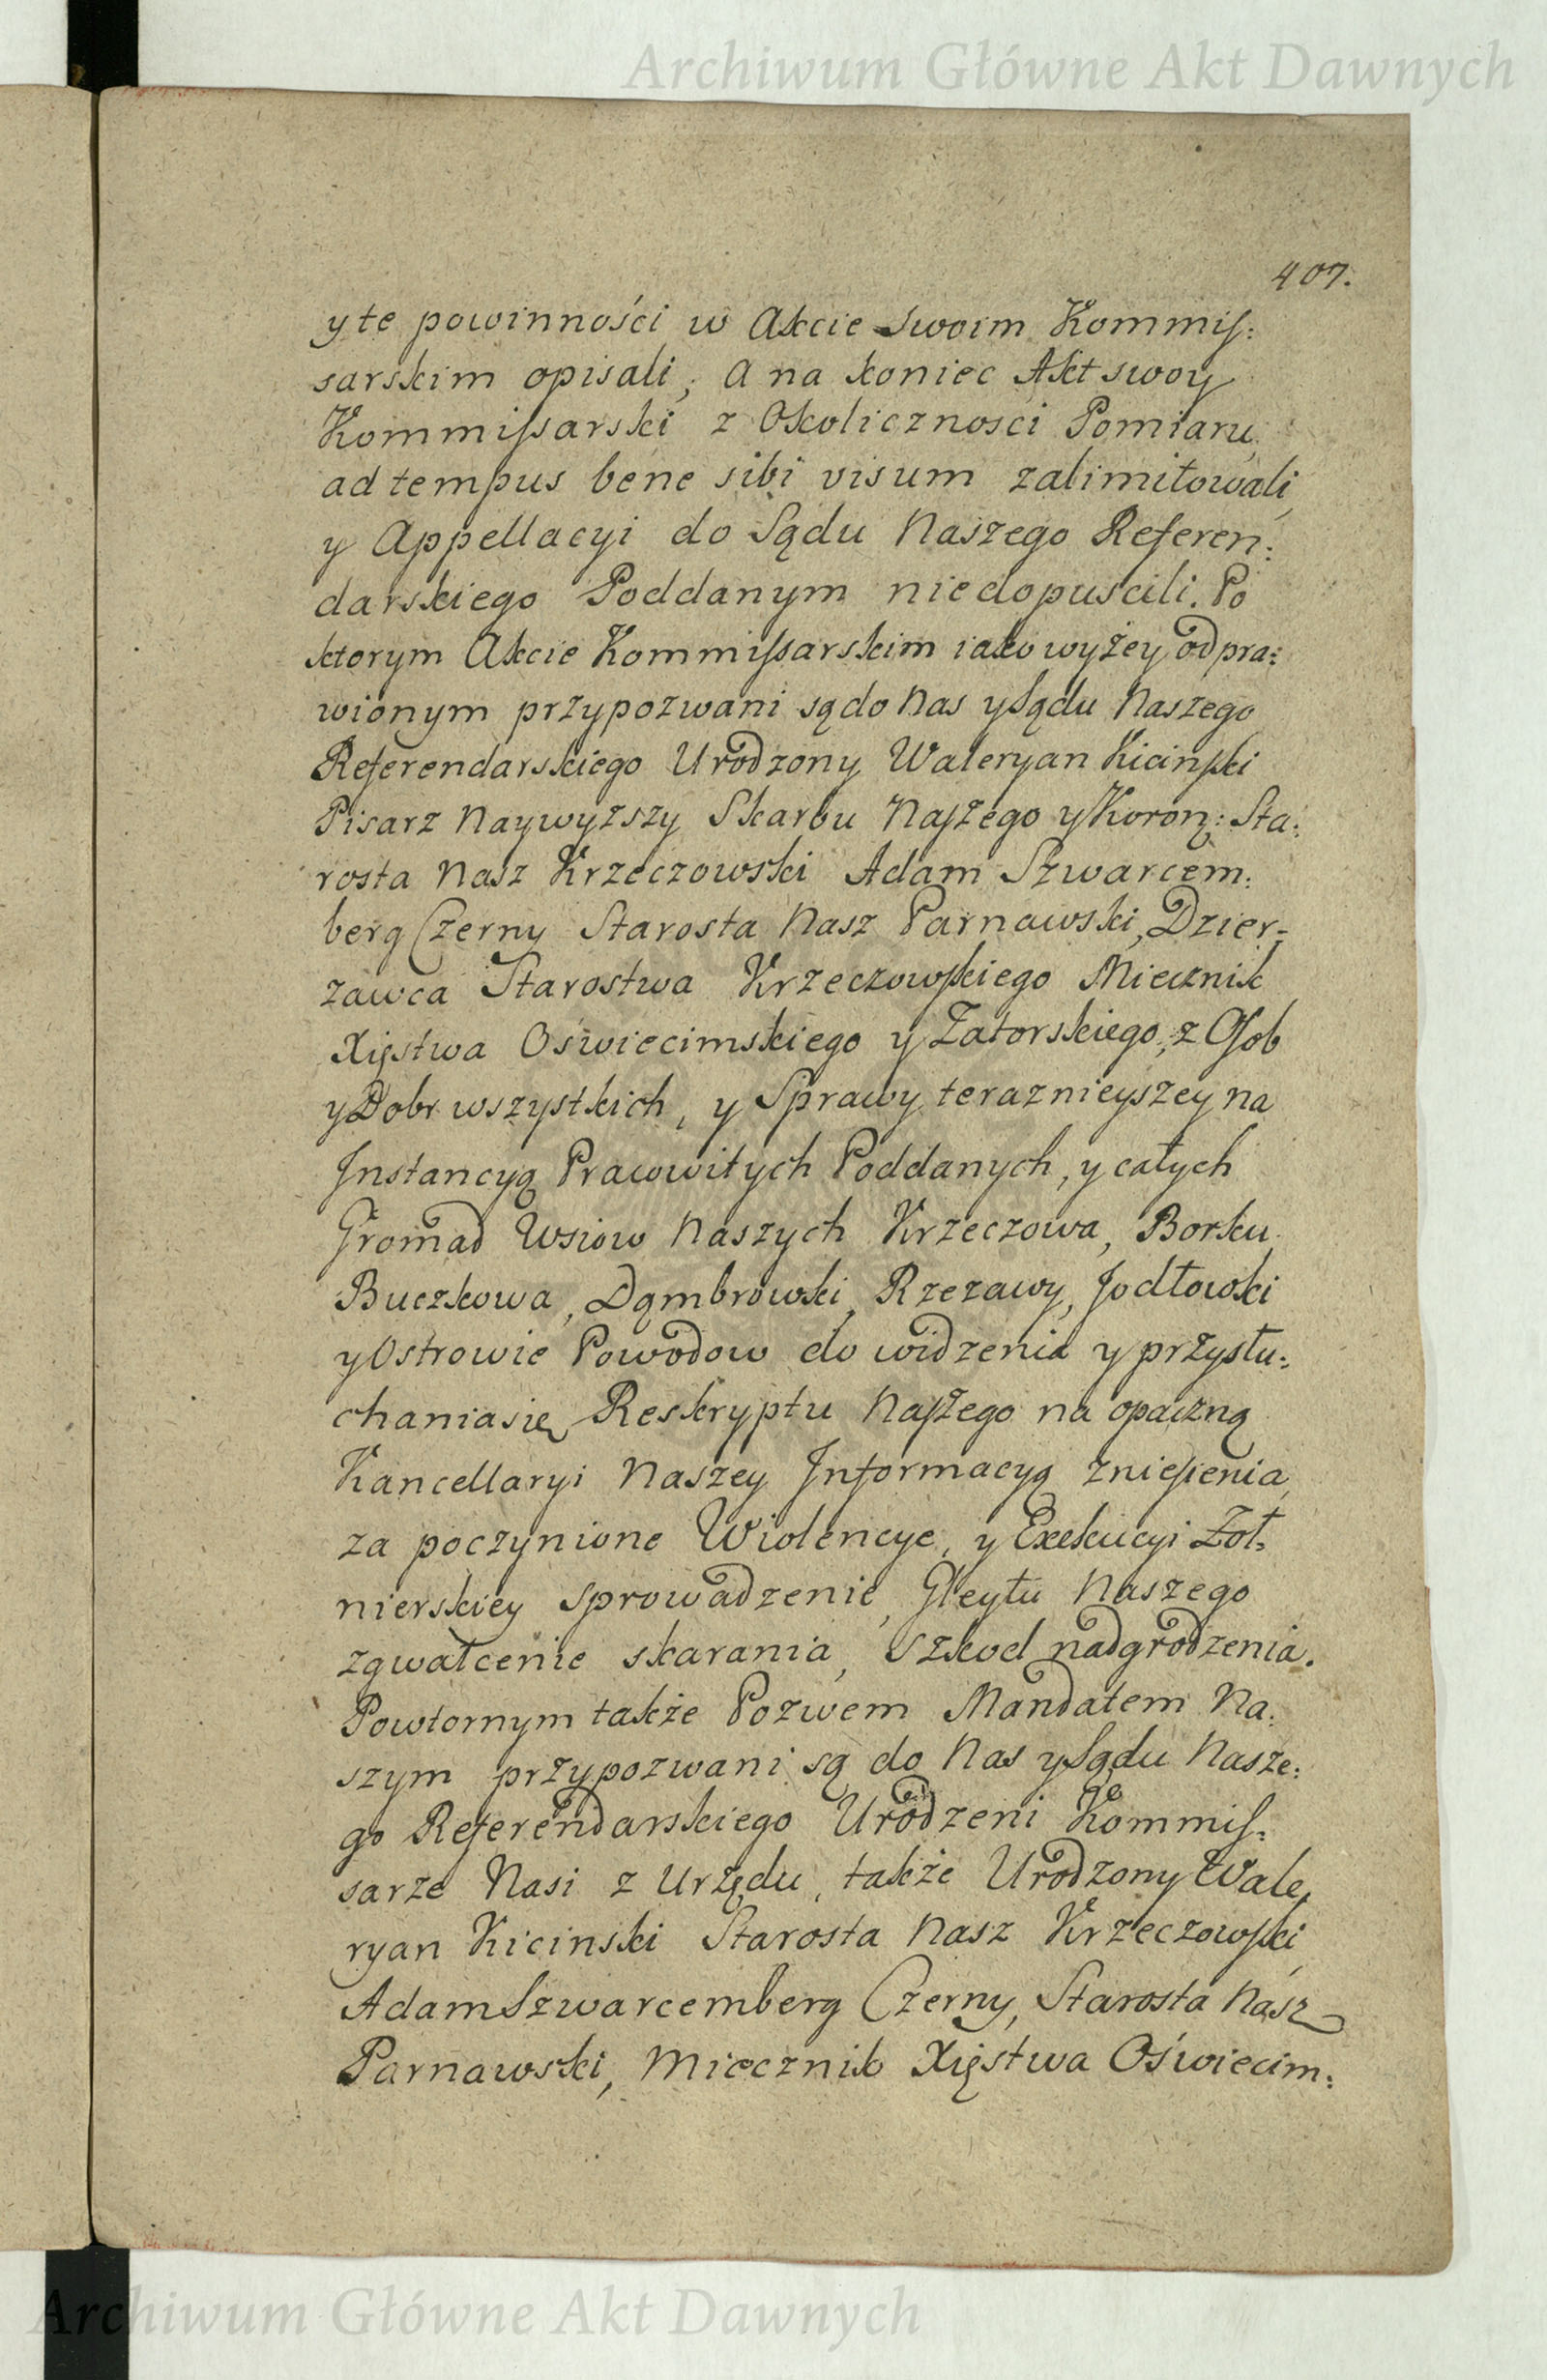 Archiwum Główne Akt Dawnych
407.
y te powinności w Akcie swoim Kommis:
sarskim opisali, a na koniec Akt swoy
Kommissarski z Okoliczności Pomiaru
ad tempus bene sibi visum zalimitowali,
y Appellacyi do Sądu Naszego Referen:
darskiego Poddanym niedopuścili. Po
ktorym Akcie Kommissarskim iako wyżey odpra:
wionym przypozwani są do Nas y Sądu Naszego
Referendarskiego Urodzony Waleryan Kicinski
Pisarz Naywyzszy Skarbu Naszego y Koron: Sta:
rosta Nasz Krzeczowski Adam Szwarcem:
berg Czerny Starosta Nasz Parnawski, Dzier:
zawca Starostwa Krzeczowskiego Miecznik
Xięstwa Oswiecimskiego y Zatorskiego, z Osob
y Dobr wszystkich, y Sprawy teraznieyszey na
Instancyą Prawowitych Poddanych, y całych
Gromad Wsiow Naszych Krzeczowa, Borku,
Buczkowa, Dąmbrowki, Rzezawy, Jodłowki
y Ostrowie Powodow do widzenia y przysłu:
chania się Reskryptu Naszego na opaczną
Kancellaryi Naszey Informacyą zniesienia,
za poczynione Wiolencye, y Exekucyi Zoł:
nierskiey sprowadzenie, Gleytu Naszego
zgwałcenie skarania, szkod nadgrodzenia.
Powtornym także Pozwem Mandatem Na:
szym przypozwani są do Nas y Sądu Nasze:
go Referendarskiego Urodzeni Kommis:
sarze Nasi z Urzędu, także Urodzony Wale,
ryan Kicinski Starosta Nasz Krzeczowski,
Adam Szwarcemberg Czerny, Starosta Nasz
Parnawski, Miecznik Xięstwa Oświecim:
Archiwum Główne Akt Dawnych